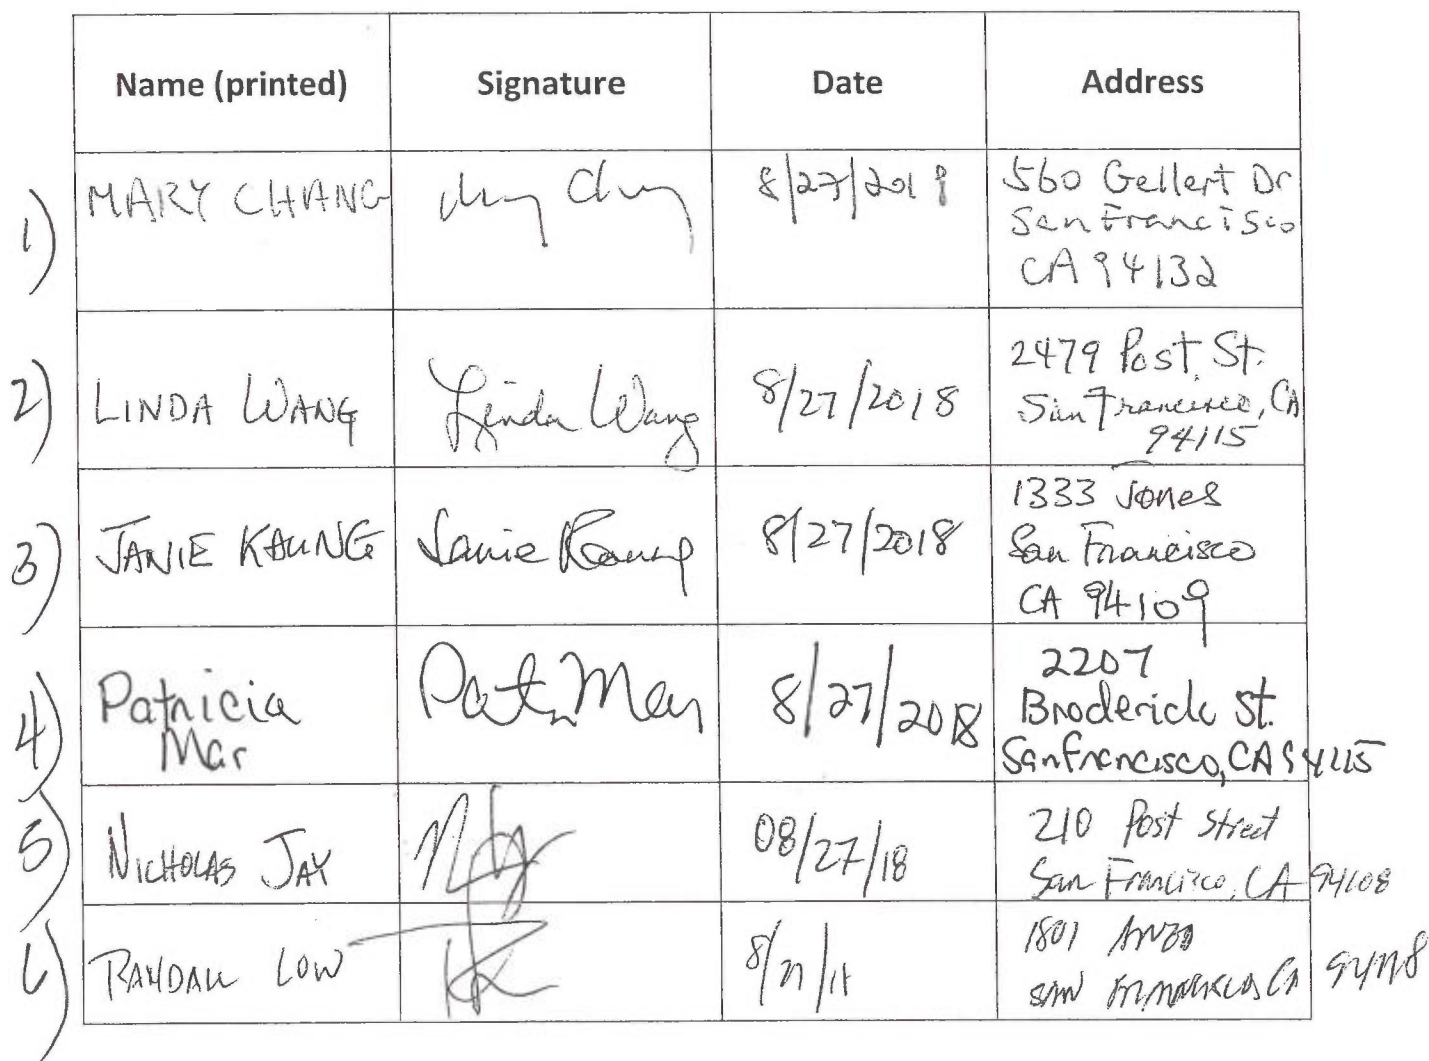 Name (printed) Signature Date Address
1) MARY CHANG 8/27/2018 560 Gellert Dr
San Francisco
CA 94132
2) LINDA WANG Linda Wang 8/27/2018 2479 Post St.
San Francisco, CA
94115
3) JANIE KAUNG Janie Kaung 8/27/2018 1333 Jones
San Francisco
CA 94109
4) Patricia Pat Mar 8/27/2018 2207
Mar Broderick St.
San Francisco, CA 94115
5) NICHOLAS JAY 08/27/18 210 Post Street
San Francisco, CA 94108
6) RANDALL LOW 1801
SAN FRANCISCO CA